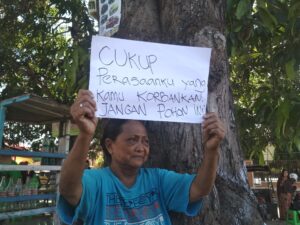 CUKUP
PERASAANKU yang
KAMU KORBANKAN.
JANGAN POHON INI